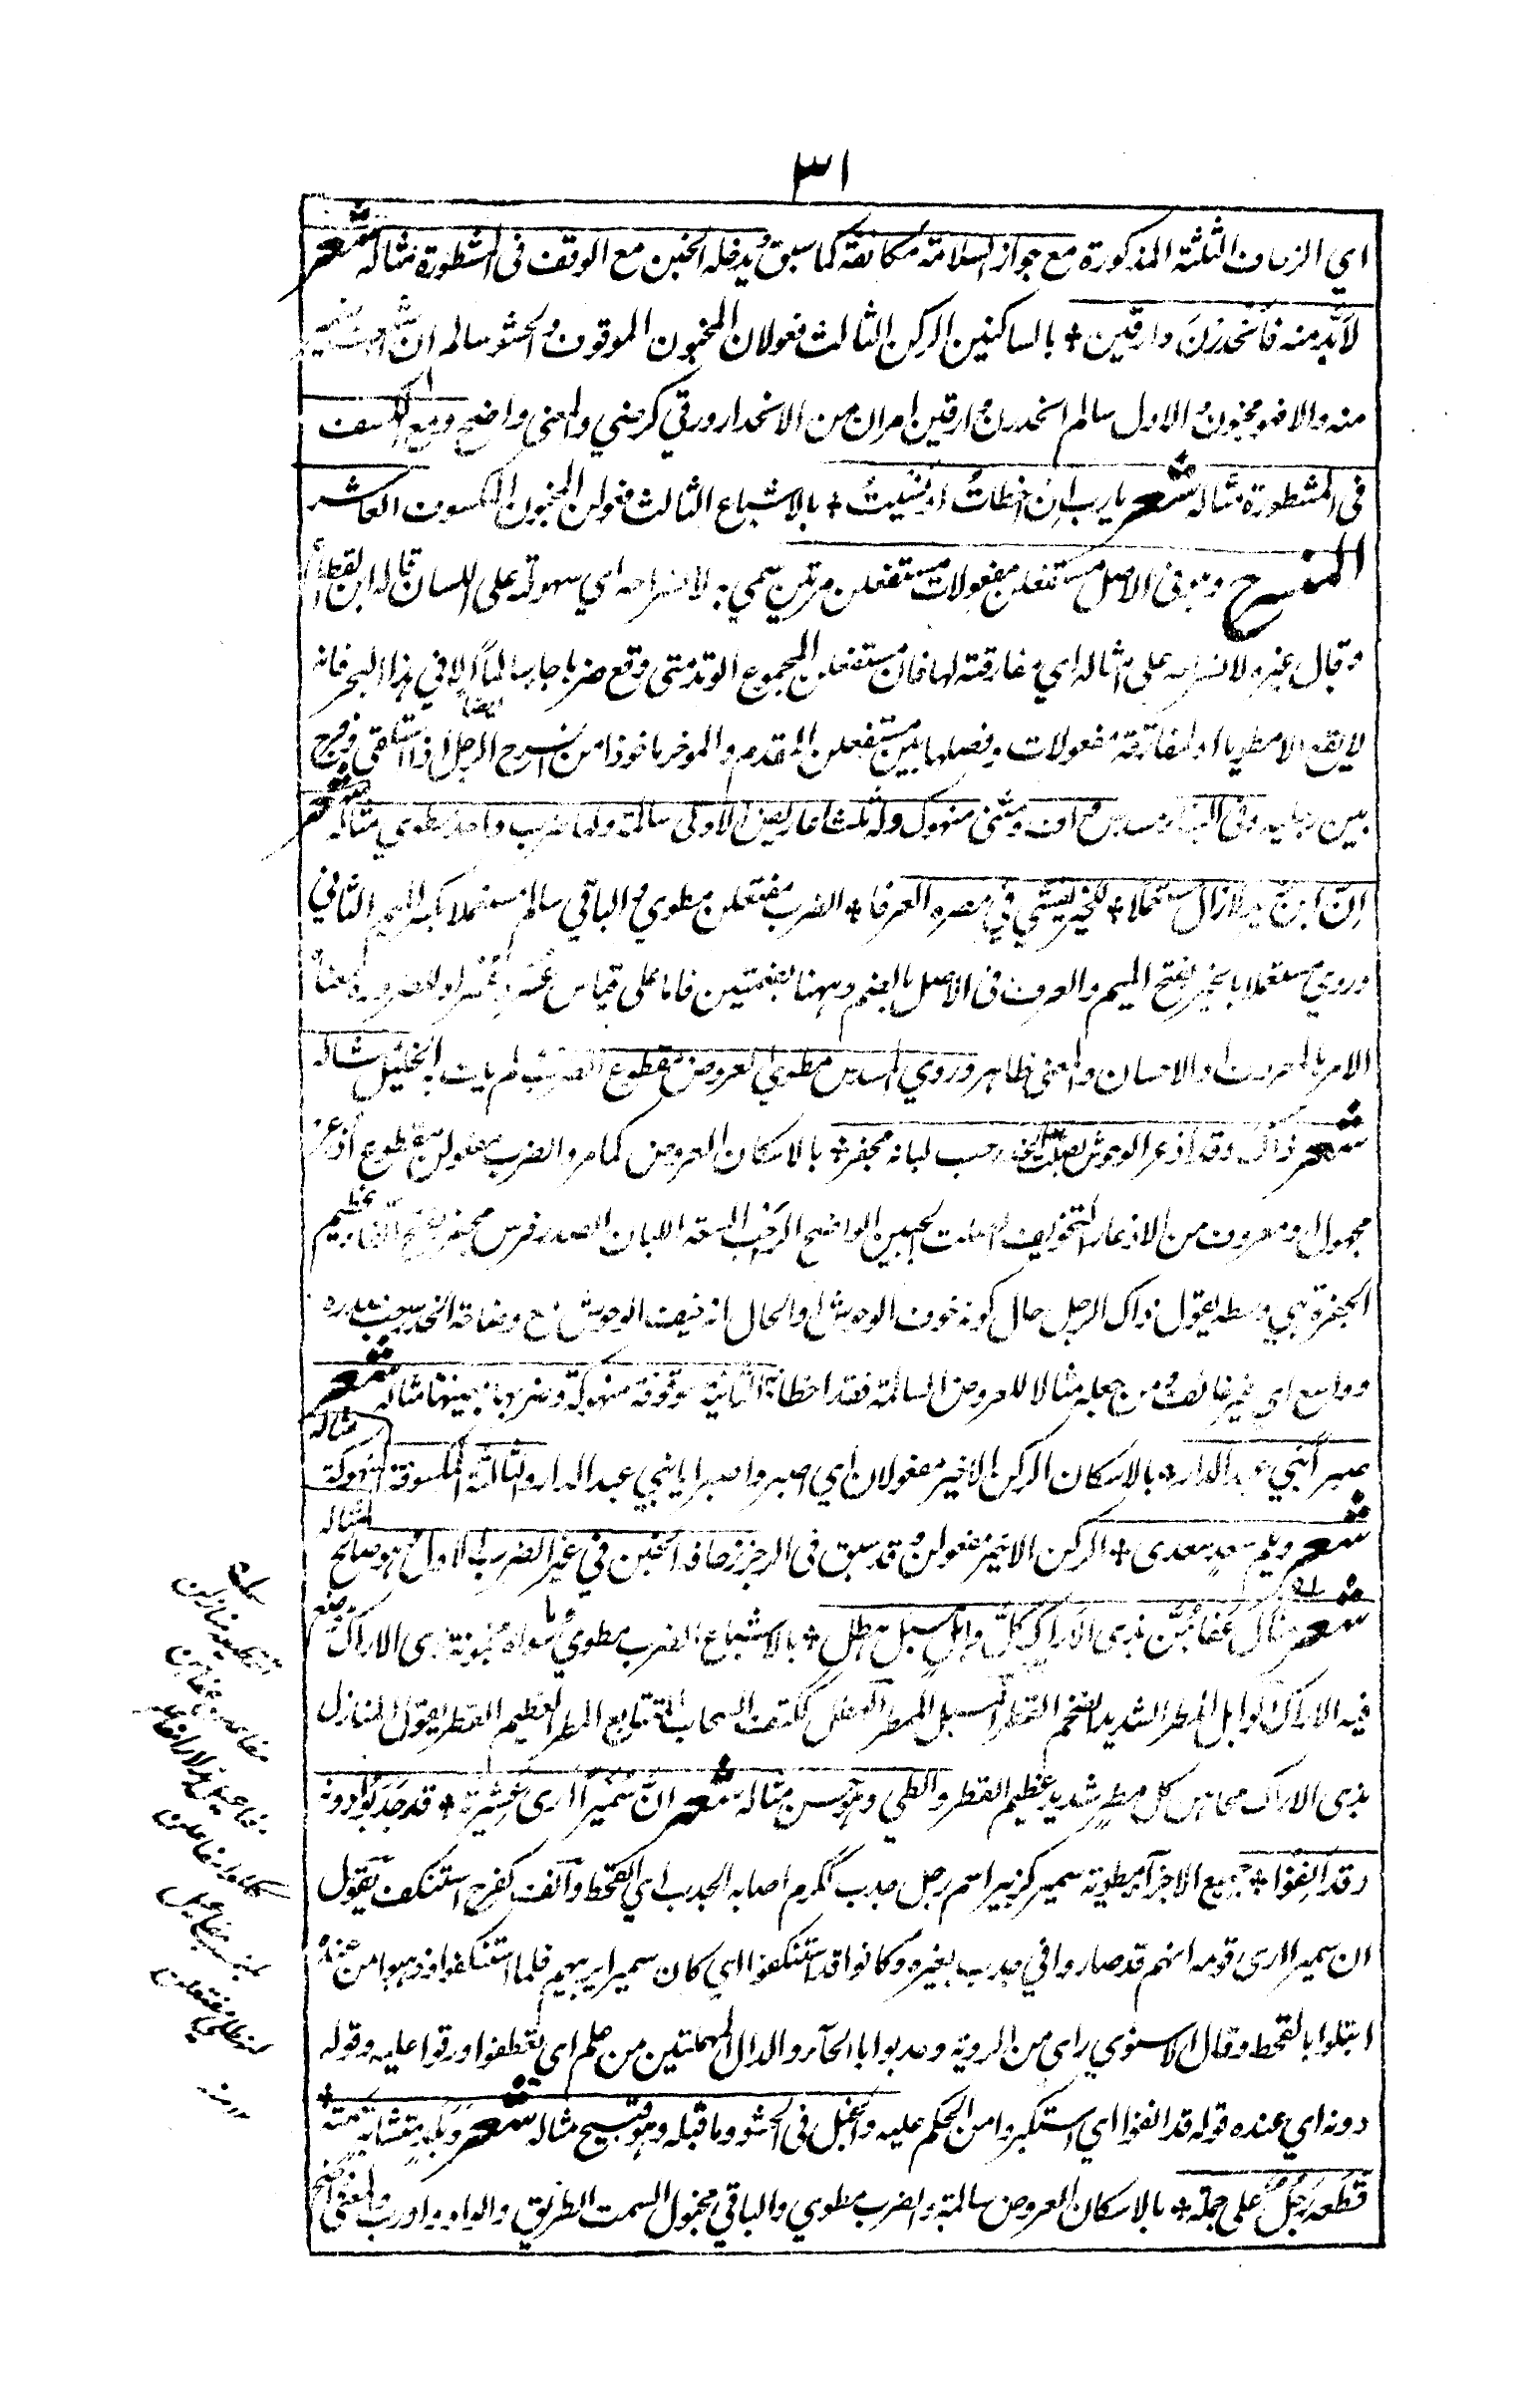 ٣١
اي الزحاف الثلثة المذكورة مع جواز السلامة مكانفة كما سبق ويدخله الخبن مع الوقف فى المشطورة مثاله شعر
لابد منه فانحدرن وارقين + بالساكنين الركن الثالث فعولان المخبون الموقوف والحشو سالم ان
منه والا فهو مخبون والاول سالم انحدرن وارقين امران من الانحدار ورقي كرضي والمعنى واضح ومع الكسف
فى المشطورة مثاله شعر يارب ان اخطات او نسيت + بالاشباع الثالث فعولن المخبون المكسوف العاشر
المنسرح وهو فى الاصل مستفعلن مفعولات مستفعلن مرتين سمي به لانسراحه اي سهولته على اللسان قاله ابن القطاع
وقال غيره لانسراحه على امثاله اي مفارقته لها فان مستفعلن المجموع الوتد متى وقع ضربا جاء سالما الا في هذا البحر فانه
لا يقع الا مطويا او لمفارقة مفعولات وفصلها بين مستفعلن المقدم والموخر ماخوذا من انسرح الرجل اذا استلقى وفرج
ايضا
بين رجليه وفى البناء مسدس واف ومثنى منهوك وله ثلث اعاريض الاولى سالمة ولها ضرب واحد مطوي مثاله شعر
ان ابن زيد لازال مستعملا + للخير يفشي في مصره العرفا + الضرب مفتعلن مطوي والباقي سالم مستعملا بكسر الميم الثاني
وروي مستعملا بالخير بفتح الميم والعرف فى الاصل بالضم وههنا بضمتين فاما على قياس عسر او للضرورة معناه
الامر بالمعروف او الاحسان والمعنى ظاهر وروي المسدس مطوي العروض مقطوع الضرب لم يات به الخليل مثاله
شعر ذاك وقد اذعر الوحوش بصلت الخد رحب لبانه مجفر + بالاسكان العروض كما مر والضرب مفعولن مقطوع اذعر
مجهول او معروف من الاذعار التخويف الصلت الجبين الواضح الرحب السعة اللبان الصدر فرس مجفر بفتح الفاء عظيم
الجفرة هي وسطه يقول ذاك الرجل حال كونه خوف الوحوش او الحال انه خيفت الوحوش مع وضاحة الخد رحب صدره
وواسع اي غير خائف ومن جعله مثالا للعروض السالمة فقد اخطا الثانية موقوفة منهوكة وضربها بعينها مثاله شعر
صبرا بني عبد الدار + بالاسكان الركن الاخير مفعولان اي اصبروا صبرا يا بني عبد الدار والثالثة المكسوفة المنهوكة مثاله
شعر ويلم سعد سعدى + الركن الاخير مفعولن وقد سبق فى الرجز زحافه الخبن في غير الضرب الاول وهو صالح مثاله
شعر منازل عفاهن بذى الاراك كل وابل مسبل هطل + بالاشباع الضرب مطوي وما سواه مخبونة ذى الاراك موضع
فيه الاراك الوابل المطر الشديد الضخم القطر المسبل الممطر الهطل ككتف السحاب المتتابع المطر العظيم القطر يقول المنازل
بذى الاراك محاهن كل مطر شديد عظيم القطر والطي وهو حسن مثاله شعر ان سميرا ارى عشيرته + قد حدبوا دونه
وقد انفوا + جميع الاجزآء مطوية سمير كزبير اسم رجل جدب ككرم اصابه الجدب اي القحط وانف كفرح استنكف يقول
ان سميرا ارى قومه انهم قد صاروا في جدب بغيره وكانوا قد استنكفوا اي كان سميرا يريهم فلما استنكفوا وذهبوا من عنده
ابتلوا بالقحط وقال الاسنوي راى من الروية وحدبوا بالحآء والدال المهملتين من علم اي تعطفوا ورقوا عليه وقوله
دونه اي عنده قوله قد انفوا اي استكبروا من الحكم عليه والخبل فى الحشو وما قبله وهو قبيح مثاله شعر وبلد متشابه سمته +
قطعه رجل على جمله + بالاسكان العروض سالمة والضرب مطوي والباقي مخبول السمت الطريق والواو واو رب والمعنى واضح